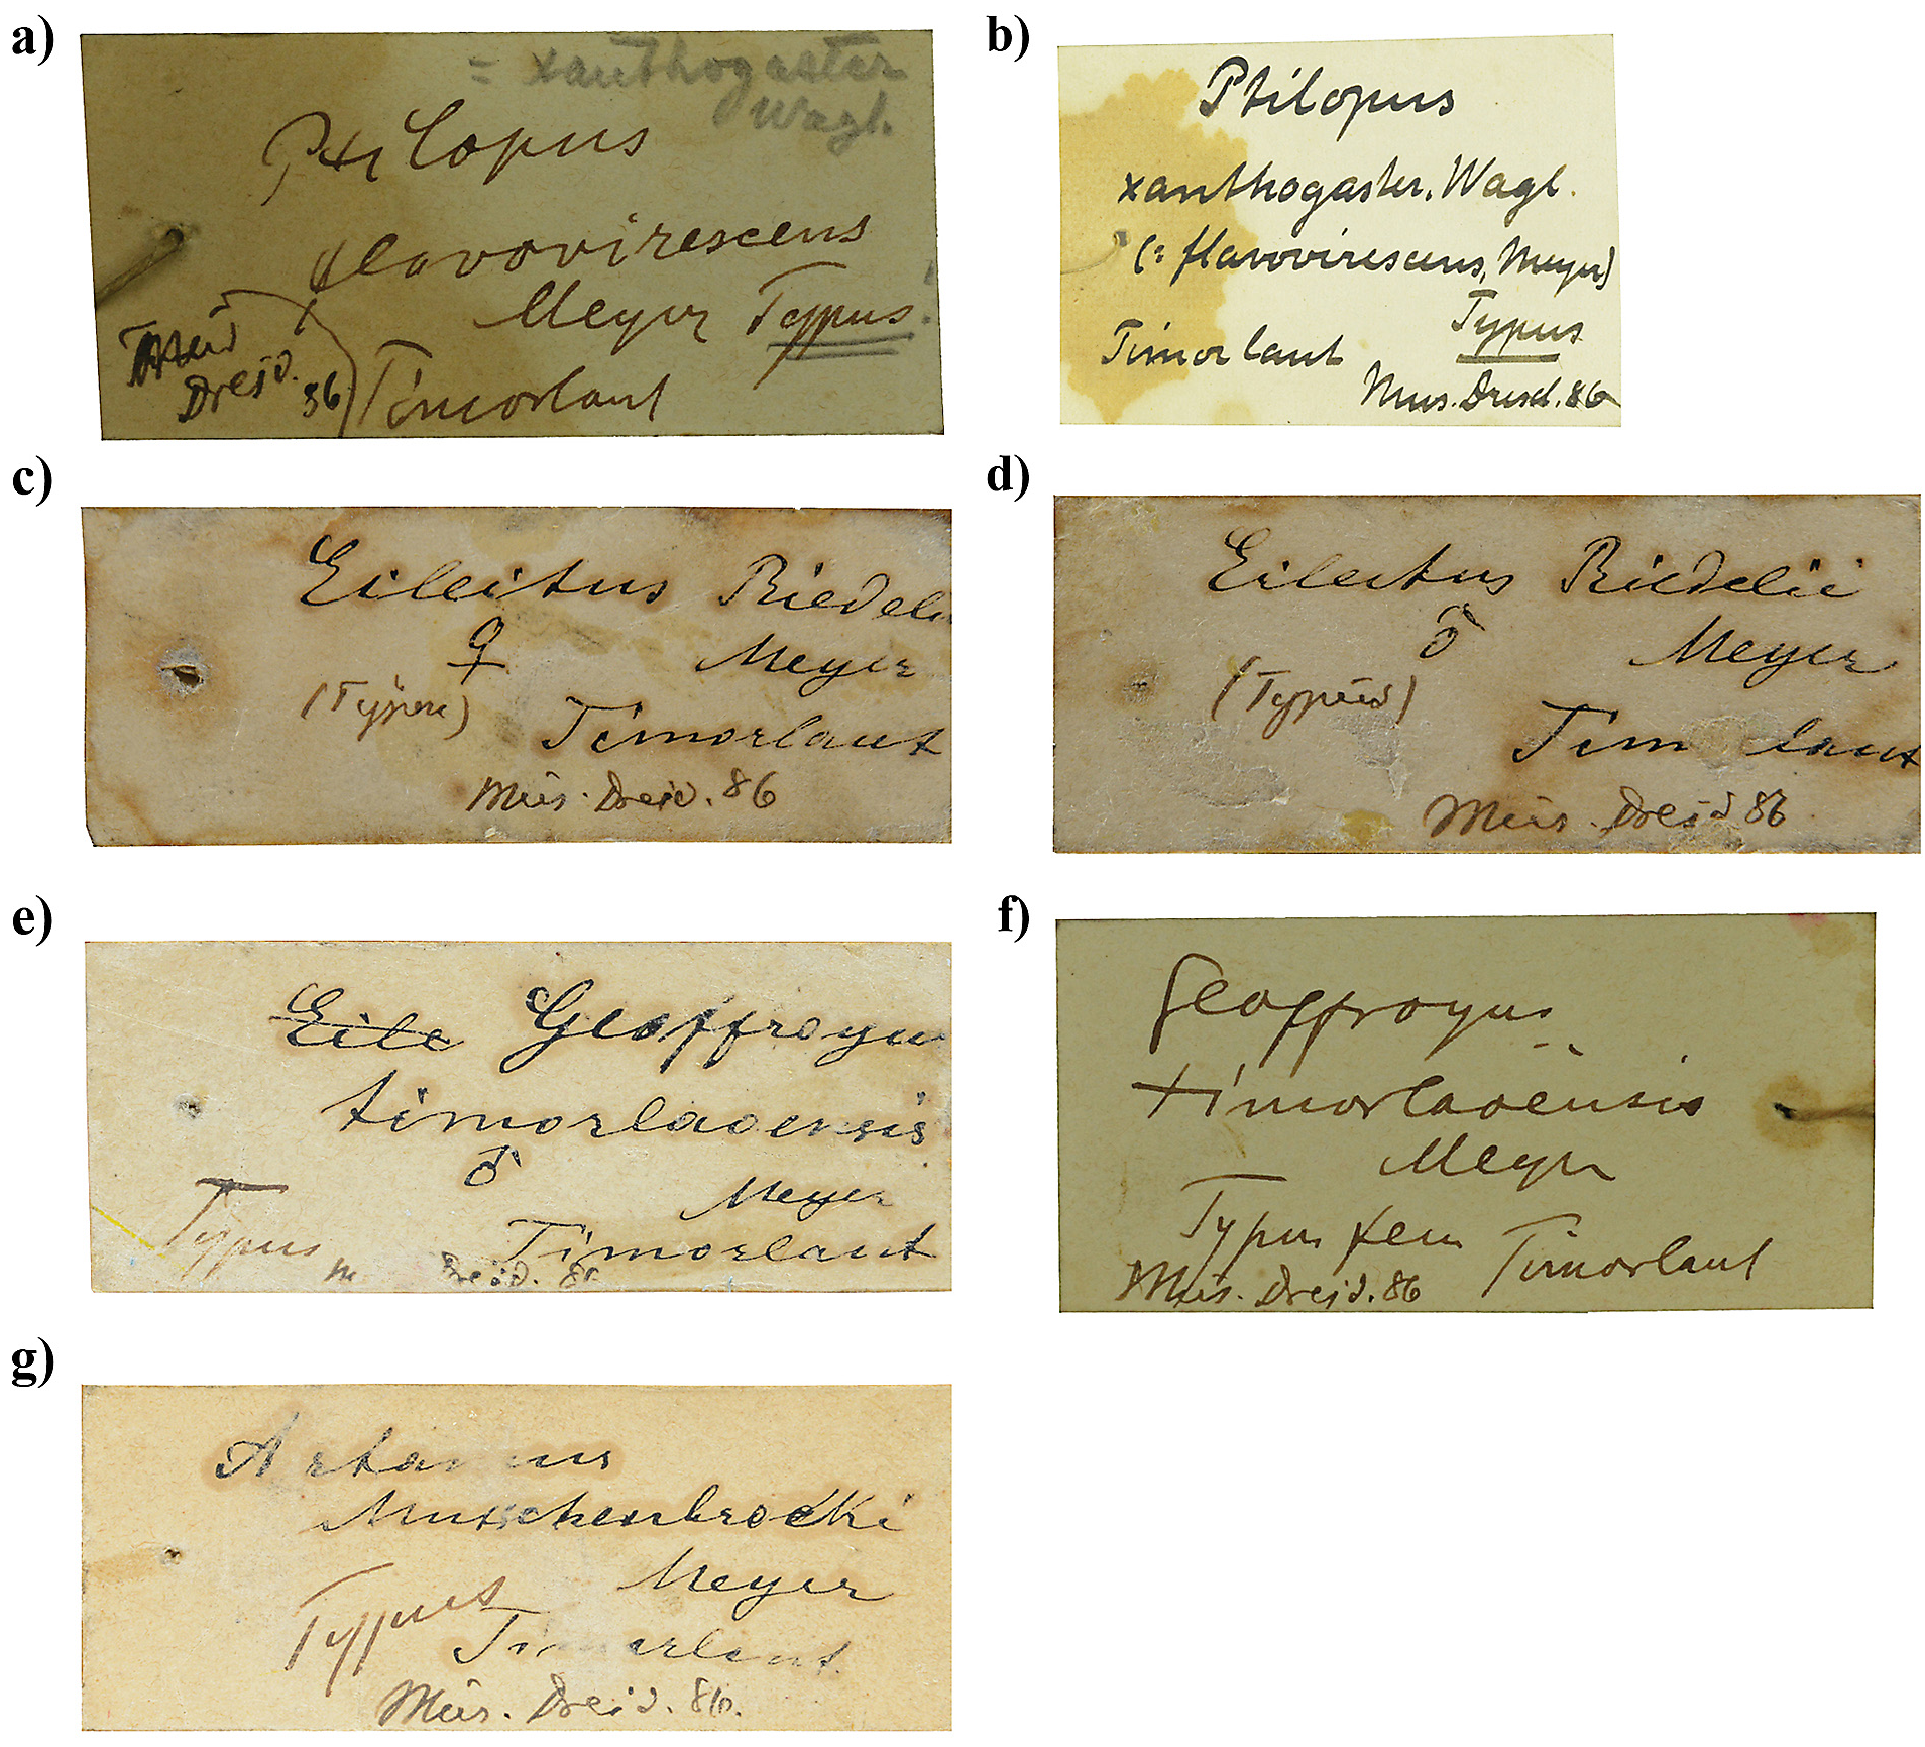 a)
= xanthogaster
Wagl.
Ptilopus
flavovirescens
Meyer Typus!
Mus
Dresd. 86
Timorlaut
b)
Ptilopus
xanthogaster, Wagl.
(= flavovirescens, Meyer)
Typus
Timorlaut
Mus. Dresd. 86
c)
Eclectus Riedeli
♀
Meyer
(Typus)
Timorlaut
Mus. Dresd. 86
d)
Eclectus Riedelii
♂
Meyer
(Typus)
Tim laut
Mus. Dresd 86
e)
Ecle Geoffroyus
timorlaoensis
♂
Meyer
Typus
Timorlaut
M Dresd. 86
f)
Geoffroyus
timorlaoënsis
Meyer
Typus fem
Timorlaut
Mus. Dresd. 86
g)
Artamus
Musschenbroeki
Meyer
Typus
Timorlaut.
Mus. Dresd. 86.